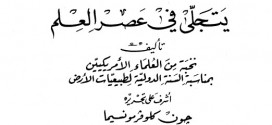 يتجلى في عصر العلم
تأليف
نخبة من العلماء الأمريكيين
بمناسبة السنة الدولية لطبيعيات الأرض
أشرف على تحريره
جون كلوفر مونسيما